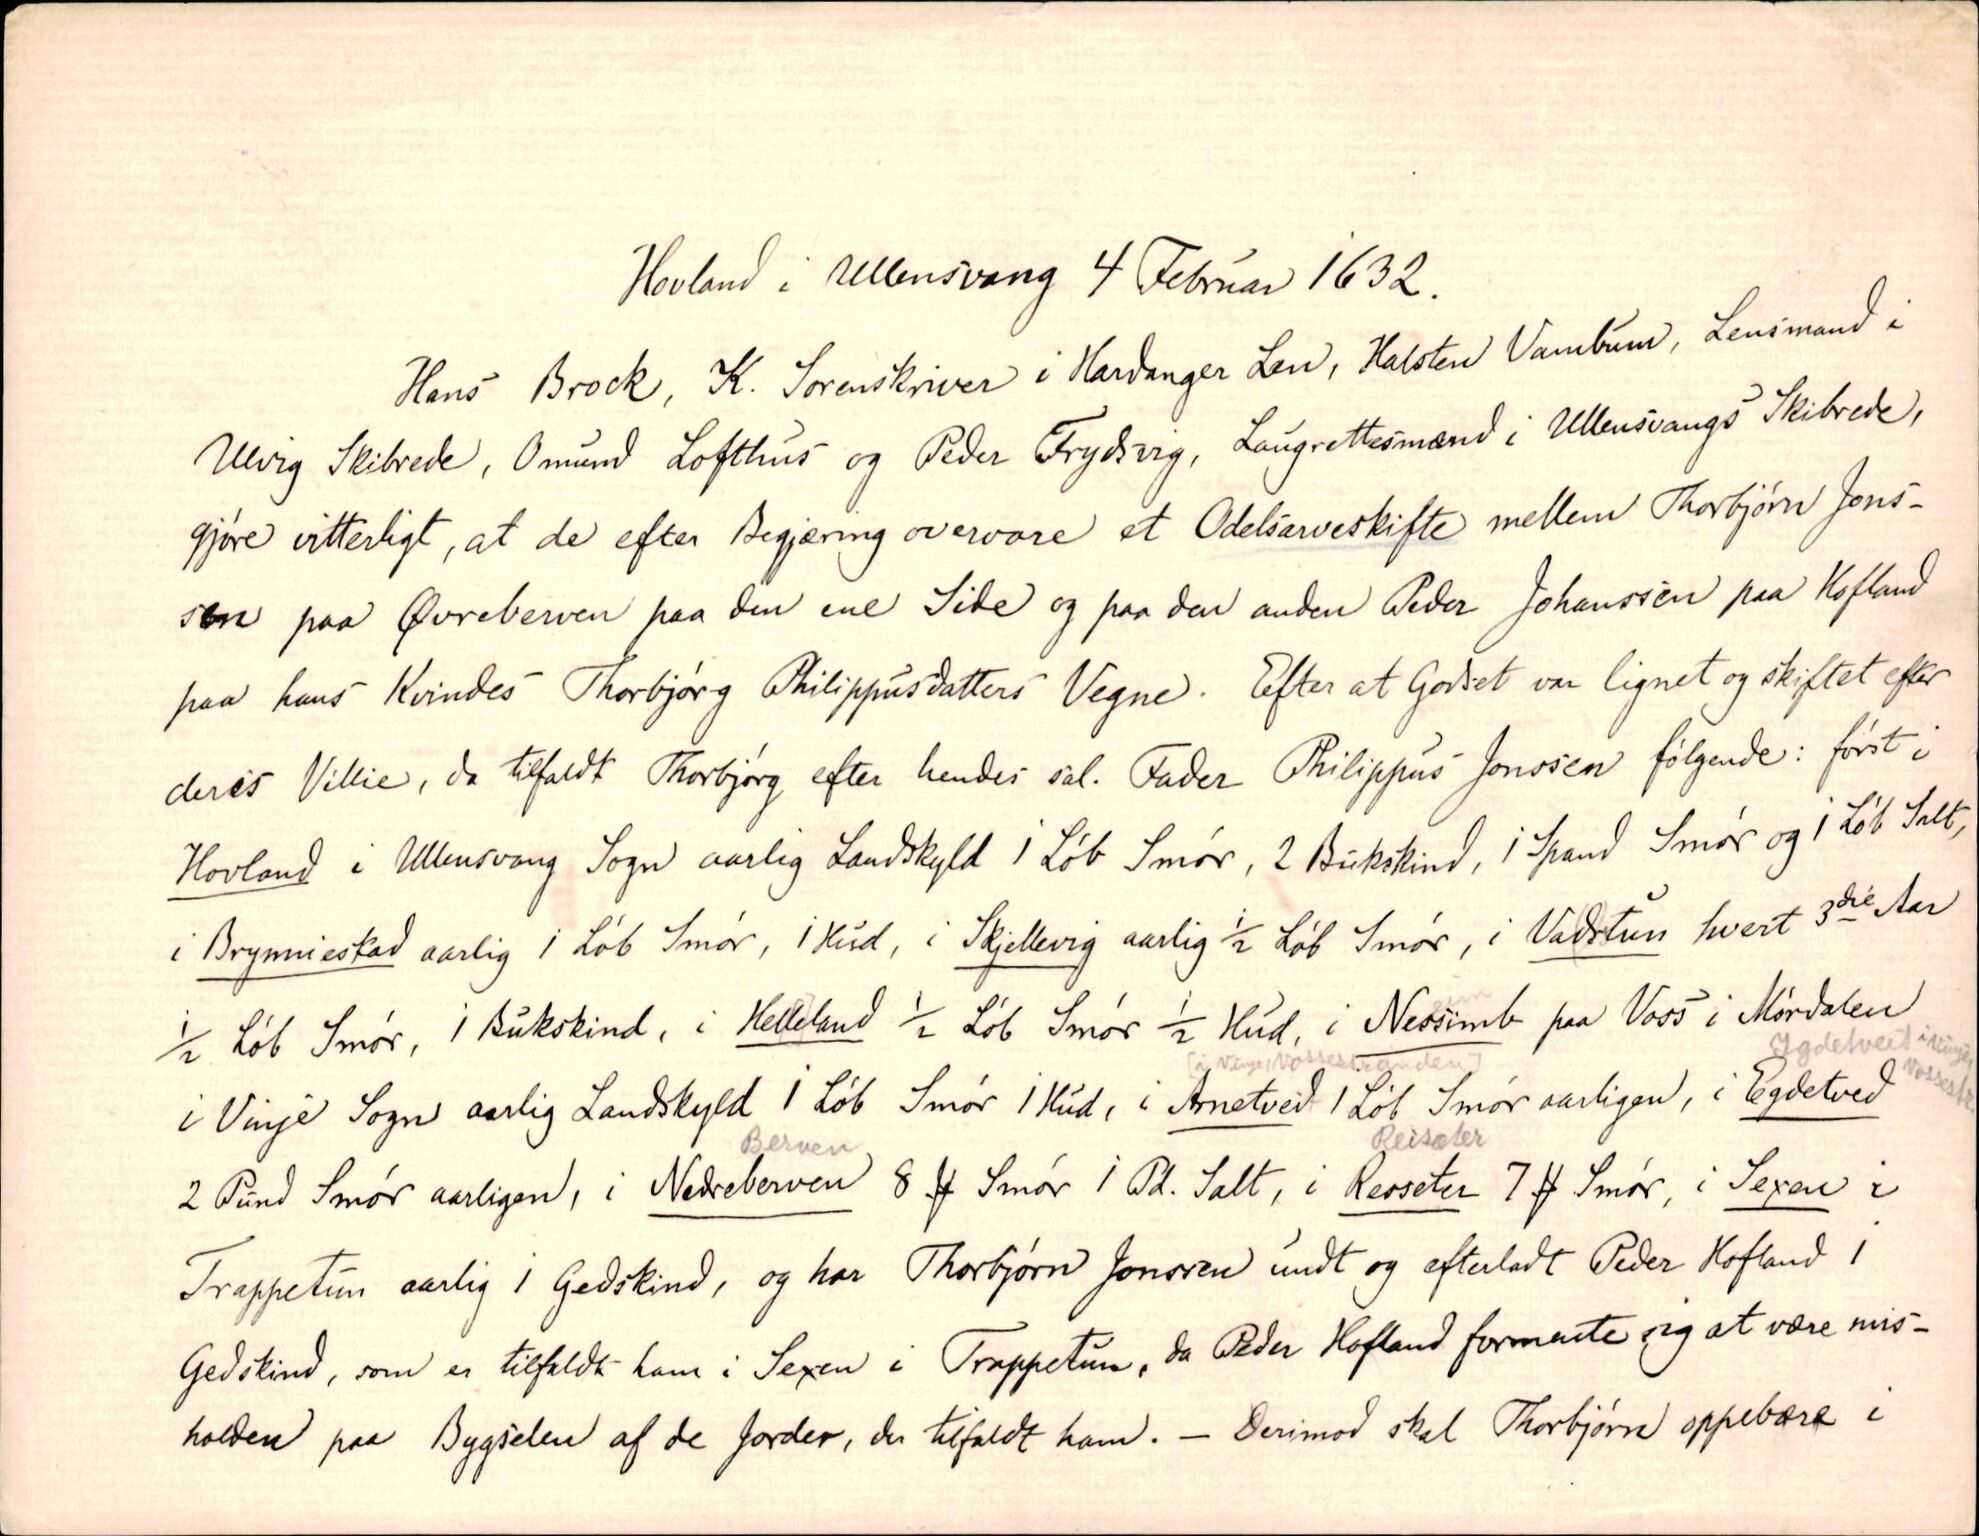 Hovland i Ullensvang 4 Februar 1632.
Hans Brock, K. Sorenskriver i Hardanger Len, Halsten Vambum, Lensmand i
Ulvig Skibrede, Omund Lofthus og Peder Frydsvig, Laugrettesmænd i Ullensvangs Skibrede,
gjøre vitterligt, at de efter Begjæring overvare et Odelsarveskifte mellem Thorbjørn Jons-
sen paa Øvreberven paa den ene Side og paa den anden Peder Johanssen paa Hofland
paa hans Kvindes Thorbjørg Philippusdatters Vegne. Efter at Godset var lignet og skiftet efter
deres Villie, da tilfaldt Thorbjørg efter hendes sal. Fader Philippus Jonssen følgende: først i
Hovland i Ullensvang Sogn aarlig Landskyld 1 Løb Smør, 2 Bukskind, 1 Spand Smør og 1 Løb Salt,
i Brynnieskad aarlig 1 Løb Smør, 1 Hud, i Skjellevig aarlig ½ Løb Smør, i Vadstun hvert 3die Aar
½ Løb Smør, 1 Bukskind, i Helleland ½ Løb Smør ½ Hud, i Nessimb paa Voss i Mørdalen
[i Vinje, Vossestranden] Ygdetveit i Vinje, Vossestr.
i Vinje Sogn aarlig Landskyld 1 Løb Smør 1 Hud, i Arnetveid 1 Løb Smør aarligen, i Egdetved
Berven Reisæter
2 Pund Smør aarligen, i Nedreberven 8 ℔ Smør 1 Pd. Salt, i Resseter 7 ℔ Smør, i Sexen i
Trappetun aarlig 1 Gedskind, og har Thorbjørn Jonssen undt og efterladt Peder Hofland 1
Gedskind, som er tilfaldt ham i Sexen i Trappetun, da Peder Hofland formente sig at være mis-
holden paa Bygselen af de Jorder, der tilfaldt ham. — Derimod skal Thorbjørn oppebære i